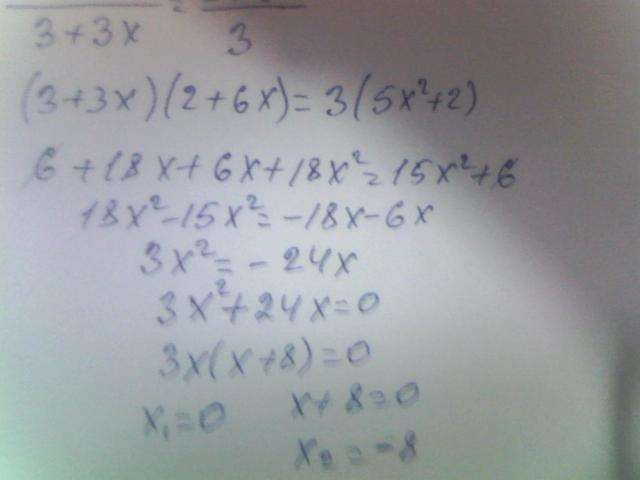 3+3x = 3
(3+3x)(2+6x)=3(5x²+2)
6+18x+6x+18x²=15x²+6
18x²-15x²=-18x-6x
3x²=-24x
3x²+24x=0
3x(x+8)=0
x₁=0 x+8=0
x₂=-8